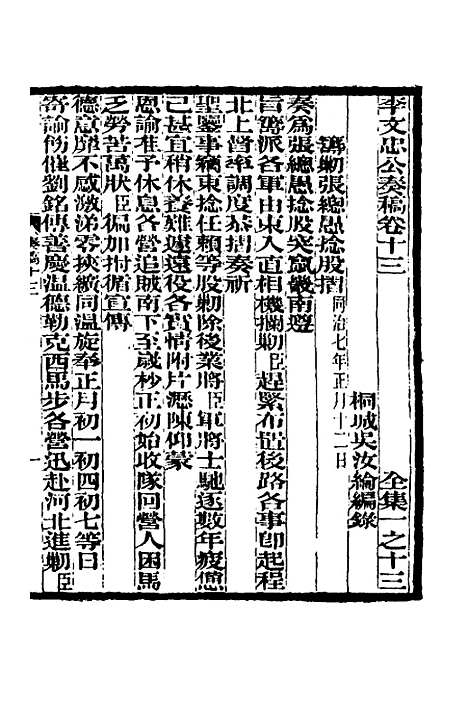 李文忠公奏稿卷十三 全集一之十三
桐城吳汝綸編錄
籌勦張總愚捻股摺 同治七年正月十二日
奏爲張總愚捻股突竄畿南遵
旨籌派各軍由東入直相機攔勦臣趕緊布置後路各事卽起程
北上督率調度恭摺奏祈
聖鑒事竊東捻任賴等股勦除後業將臣軍將士馳逐數年疲憊
已甚宜稍休養難遽遠役各實情附片瀝陳仰蒙
恩諭准予休息各營追賊南下至歲杪正初始收隊回營人困馬
乏勞苦萬狀臣徧加拊循宣傳
德意靡不感激涕零挾纊同溫旋奉正月初一初四初七等日
寄諭飭催劉銘傳善慶溫德勒克西馬步各營迅赴河北進勦臣
奏稿十三 一